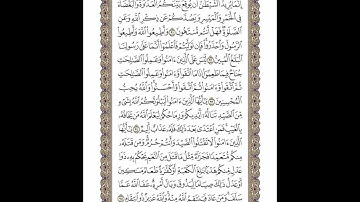 إِنَّمَا يُرِيدُ ٱلشَّيْطَٰنُ أَن يُوقِعَ بَيْنَكُمُ ٱلْعَدَٰوَةَ وَٱلْبَغْضَآءَ
فِى ٱلْخَمْرِ وَٱلْمَيْسِرِ وَيَصُدَّكُمْ عَن ذِكْرِ ٱللَّهِ وَعَنِ
ٱلصَّلَوٰةِ ۖ فَهَلْ أَنتُم مُّنتَهُونَ ٩١ وَأَطِيعُوا۟ ٱللَّهَ وَأَطِيعُوا۟
ٱلرَّسُولَ وَٱحْذَرُوا۟ ۚ فَإِن تَوَلَّيْتُمْ فَٱعْلَمُوٓا۟ أَنَّمَا عَلَىٰ رَسُولِنَا
ٱلْبَلَٰغُ ٱلْمُبِينُ ٩٢ لَيْسَ عَلَى ٱلَّذِينَ ءَامَنُوا۟ وَعَمِلُوا۟ ٱلصَّٰلِحَٰتِ
جُنَاحٌ فِيمَا طَعِمُوٓا۟ إِذَا مَا ٱتَّقَوا۟ وَّءَامَنُوا۟ وَعَمِلُوا۟ ٱلصَّٰلِحَٰتِ
ثُمَّ ٱتَّقَوا۟ وَّءَامَنُوا۟ ثُمَّ ٱتَّقَوا۟ وَّأَحْسَنُوا۟ ۗ وَٱللَّهُ يُحِبُّ
ٱلْمُحْسِنِينَ ٩٣ يَٰٓأَيُّهَا ٱلَّذِينَ ءَامَنُوا۟ لَيَبْلُوَنَّكُمُ ٱللَّهُ بِشَىْءٍ
مِّنَ ٱلصَّيْدِ تَنَالُهُۥٓ أَيْدِيكُمْ وَرِمَاحُكُمْ لِيَعْلَمَ ٱللَّهُ مَن يَخَافُهُۥ
بِٱلْغَيْبِ ۚ فَمَنِ ٱعْتَدَىٰ بَعْدَ ذَٰلِكَ فَلَهُۥ عَذَابٌ أَلِيمٌ ٩٤ يَٰٓأَيُّهَا
ٱلَّذِينَ ءَامَنُوا۟ لَا تَقْتُلُوا۟ ٱلصَّيْدَ وَأَنتُمْ حُرُمٌ ۚ وَمَن قَتَلَهُۥ
مِنكُم مُّتَعَمِّدًا فَجَزَآءٌ مِّثْلُ مَا قَتَلَ مِنَ ٱلنَّعَمِ يَحْكُمُ بِهِۦ ذَوَا
عَدْلٍ مِّنكُمْ هَدْيًۢا بَٰلِغَ ٱلْكَعْبَةِ أَوْ كَفَّٰرَةٌ طَعَامُ مَسَٰكِينَ
أَوْ عَدْلُ ذَٰلِكَ صِيَامًا لِّيَذُوقَ وَبَالَ أَمْرِهِۦ ۗ عَفَا ٱللَّهُ عَمَّا
سَلَفَ ۚ وَمَنْ عَادَ فَيَنتَقِمُ ٱللَّهُ مِنْهُ ۗ وَٱللَّهُ عَزِيزٌ ذُو ٱنتِقَامٍ ٩٥